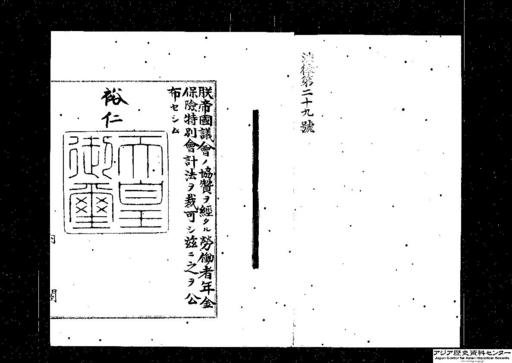 法律第二十九號
朕帝國議會ノ協贊ヲ經タル勞働者年金
保險特別會計法ヲ裁可シ玆ニ之ヲ公
布セシム
裕仁
天皇
御璽
内閣
アジア歴史資料センター
Japan Center for Asian Historical Records